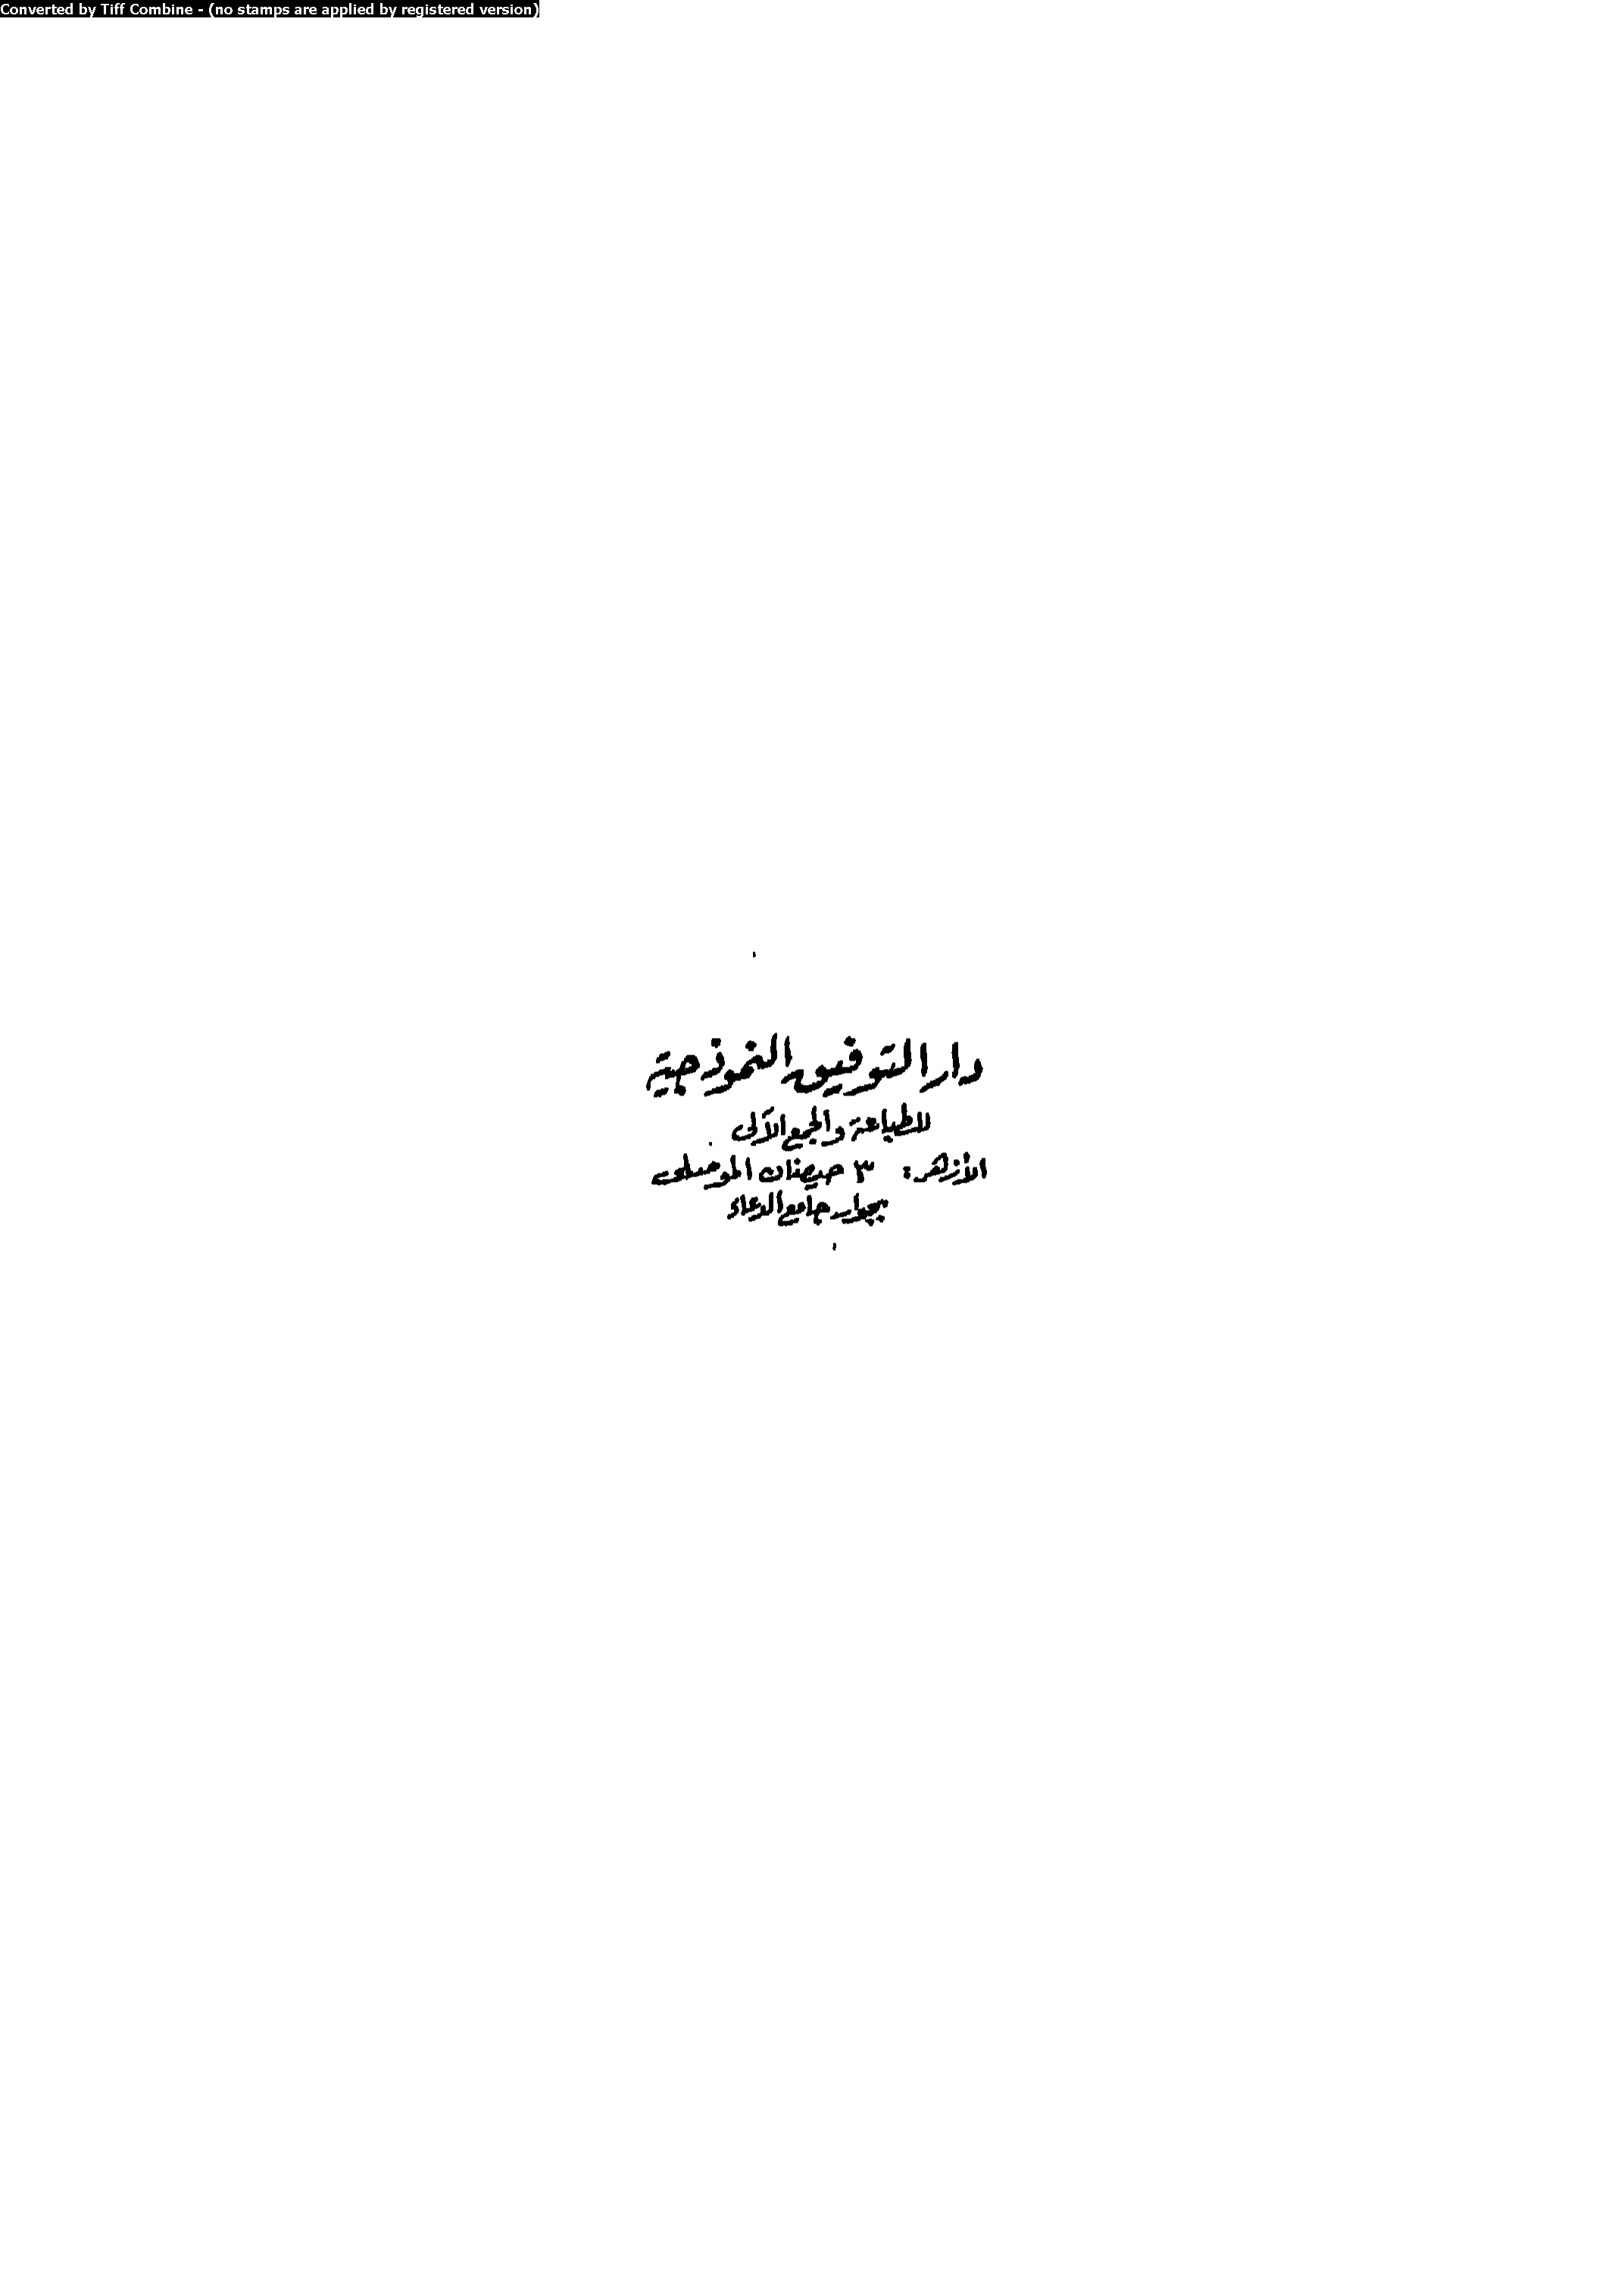 Converted by Tiff Combine - (no stamps are applied by registered version)
دار التوفيق النموذجية
للطباعة والجمع الآلى
الأزهر: ٣ حيضان الموصلى
بجوار جامع الدعاء